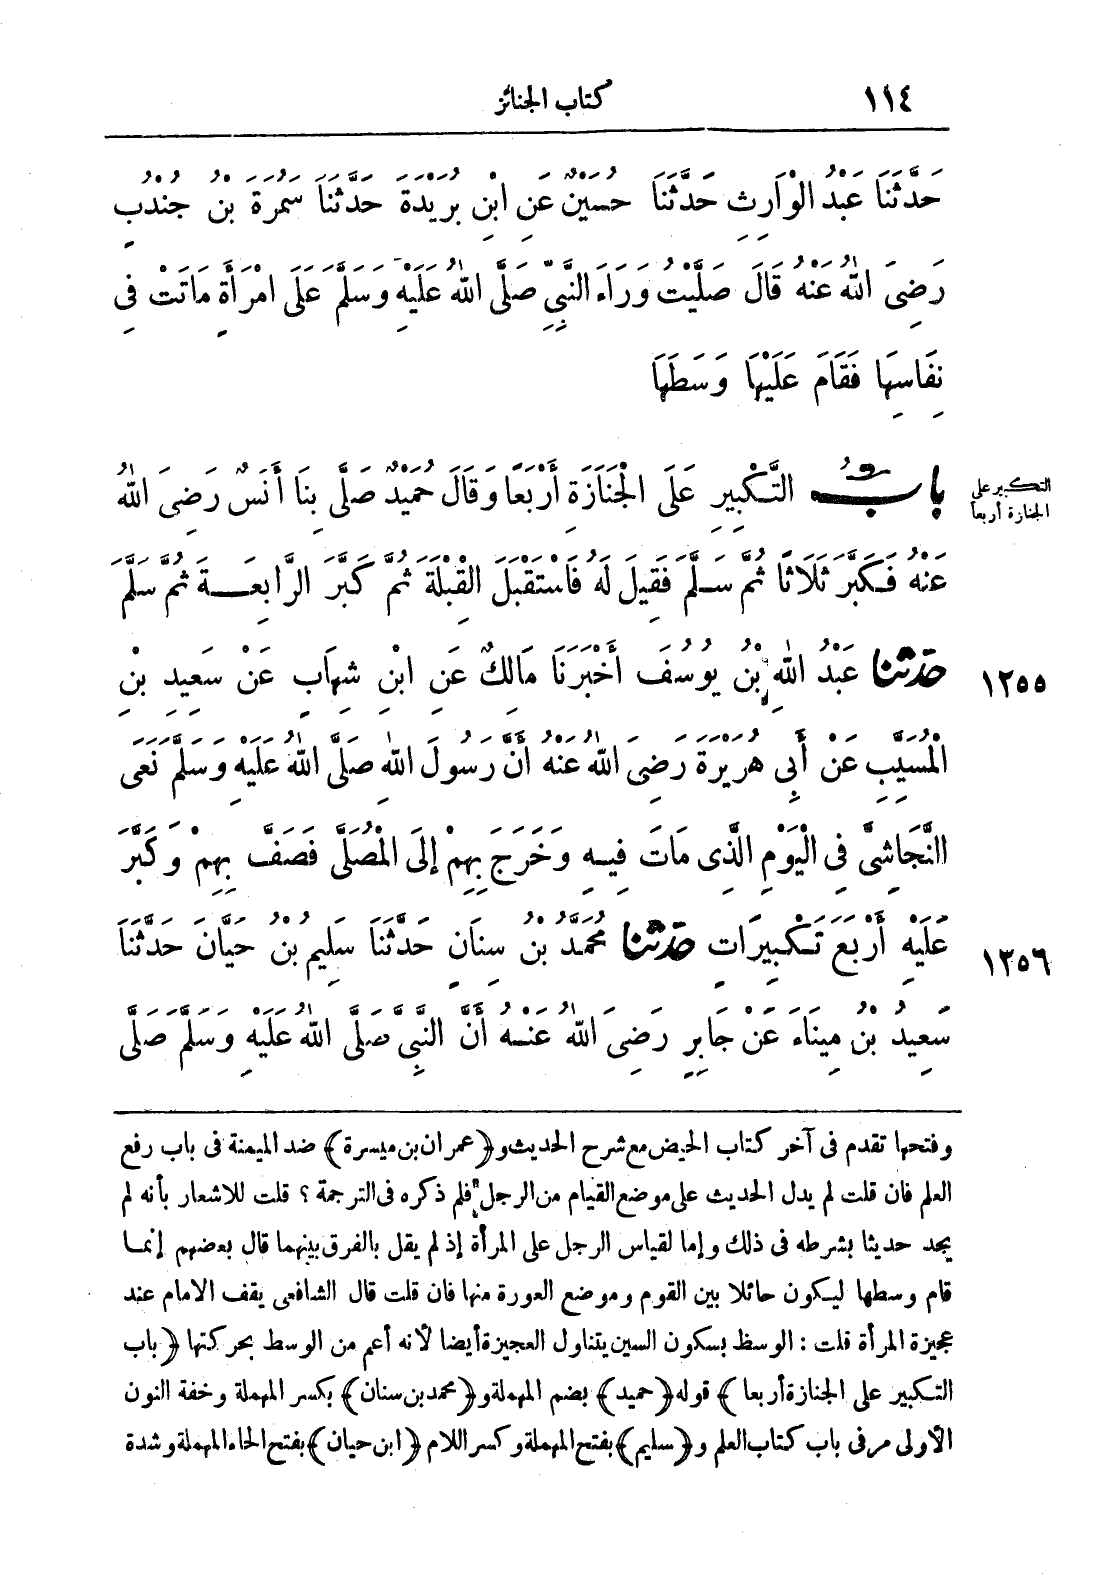 ١١٤ كتاب الجنائز
حَدَّثَنَا عَبْدُ الْوَارِثِ حَدَّثَنَا حُسَيْنٌ عَنِ ابْنِ بُرَيْدَةَ حَدَّثَنَا سَمُرَةُ بْنُ جُنْدُبٍ
رَضِىَ اللهُ عَنْهُ قَالَ صَلَّيْتُ وَرَاءَ النَّبِيِّ صَلَّى اللهُ عَلَيْهِ وَسَلَّمَ عَلَى امْرَأَةٍ مَاتَتْ فِى
نِفَاسِهَا فَقَامَ عَلَيْهَا وَسَطَهَا
بَابُ التَّكْبِيرِ عَلَى الْجَنَازَةِ أَرْبَعًا وَقَالَ حُمَيْدٌ صَلَّى بِنَا أَنَسٌ رَضِىَ اللهُ
التكبير على
الجنازة أربعا
عَنْهُ فَكَبَّرَ ثَلَاثًا ثُمَّ سَلَّمَ فَقِيلَ لَهُ فَاسْتَقْبَلَ الْقِبْلَةَ ثُمَّ كَبَّرَ الرَّابِعَةَ ثُمَّ سَلَّمَ
١٢٥٥ حَدَّثَنَا عَبْدُ اللهِ بْنُ يُوسُفَ أَخْبَرَنَا مَالِكٌ عَنِ ابْنِ شِهَابٍ عَنْ سَعِيدِ بْنِ
الْمُسَيَّبِ عَنْ أَبِى هُرَيْرَةَ رَضِىَ اللهُ عَنْهُ أَنَّ رَسُولَ اللهِ صَلَّى اللهُ عَلَيْهِ وَسَلَّمَ نَعَى
النَّجَاشِىَّ فِى الْيَوْمِ الَّذِى مَاتَ فِيهِ وَخَرَجَ بِهِمْ إِلَى الْمُصَلَّى فَصَفَّ بِهِمْ وَكَبَّرَ
١٢٥٦ عَلَيْهِ أَرْبَعَ تَكْبِيرَاتٍ حَدَّثَنَا مُحَمَّدُ بْنُ سِنَانٍ حَدَّثَنَا سَلِيمُ بْنُ حَيَّانَ حَدَّثَنَا
سَعِيدُ بْنُ مِينَاءَ عَنْ جَابِرٍ رَضِىَ اللهُ عَنْهُ أَنَّ النَّبِىَّ صَلَّى اللهُ عَلَيْهِ وَسَلَّمَ صَلَّى
وفتحها تقدم فى آخر كتاب الحيض مع شرح الحديث و﴿عمران بن ميسرة﴾ ضد الميمنة فى باب رفع
العلم فان قلت لم يدل الحديث على موضع القيام من الرجل فلم ذكره فى الترجمة ؟ قلت للاشعار بأنه لم
يجد حديثا بشرطه فى ذلك وإما لقياس الرجل على المرأة إذ لم يقل بالفرق بينهما قال بعضهم إنما
قام وسطها ليكون حائلا بين القوم وموضع العورة منها فان قلت قال الشافعى يقف الامام عند
عجيزة المرأة قلت : الوسط بسكون السين يتناول العجيزة أيضا لأنه أعم من الوسط بحركتها ﴿باب
التكبير على الجنازة أربعا﴾ قوله ﴿حميد﴾ بضم المهملة و﴿محمد بن سنان﴾ بكسر المهملة وخفة النون
الأولى مر فى باب كتاب العلم و﴿سليم﴾ بفتح المهملة وكسر اللام ﴿ابن حيان﴾ بفتح الحاء المهملة وشدة